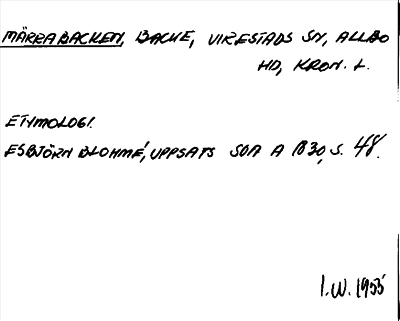 MÄRRABACKEN, BACKE, VIRESTADS SN, ALLBO
HD, KRON. L.
ETYMOLOGI.
ESBJÖRN BLOHMÉ, UPPSATS SOA A B30, S. 48.
I.W. 1955